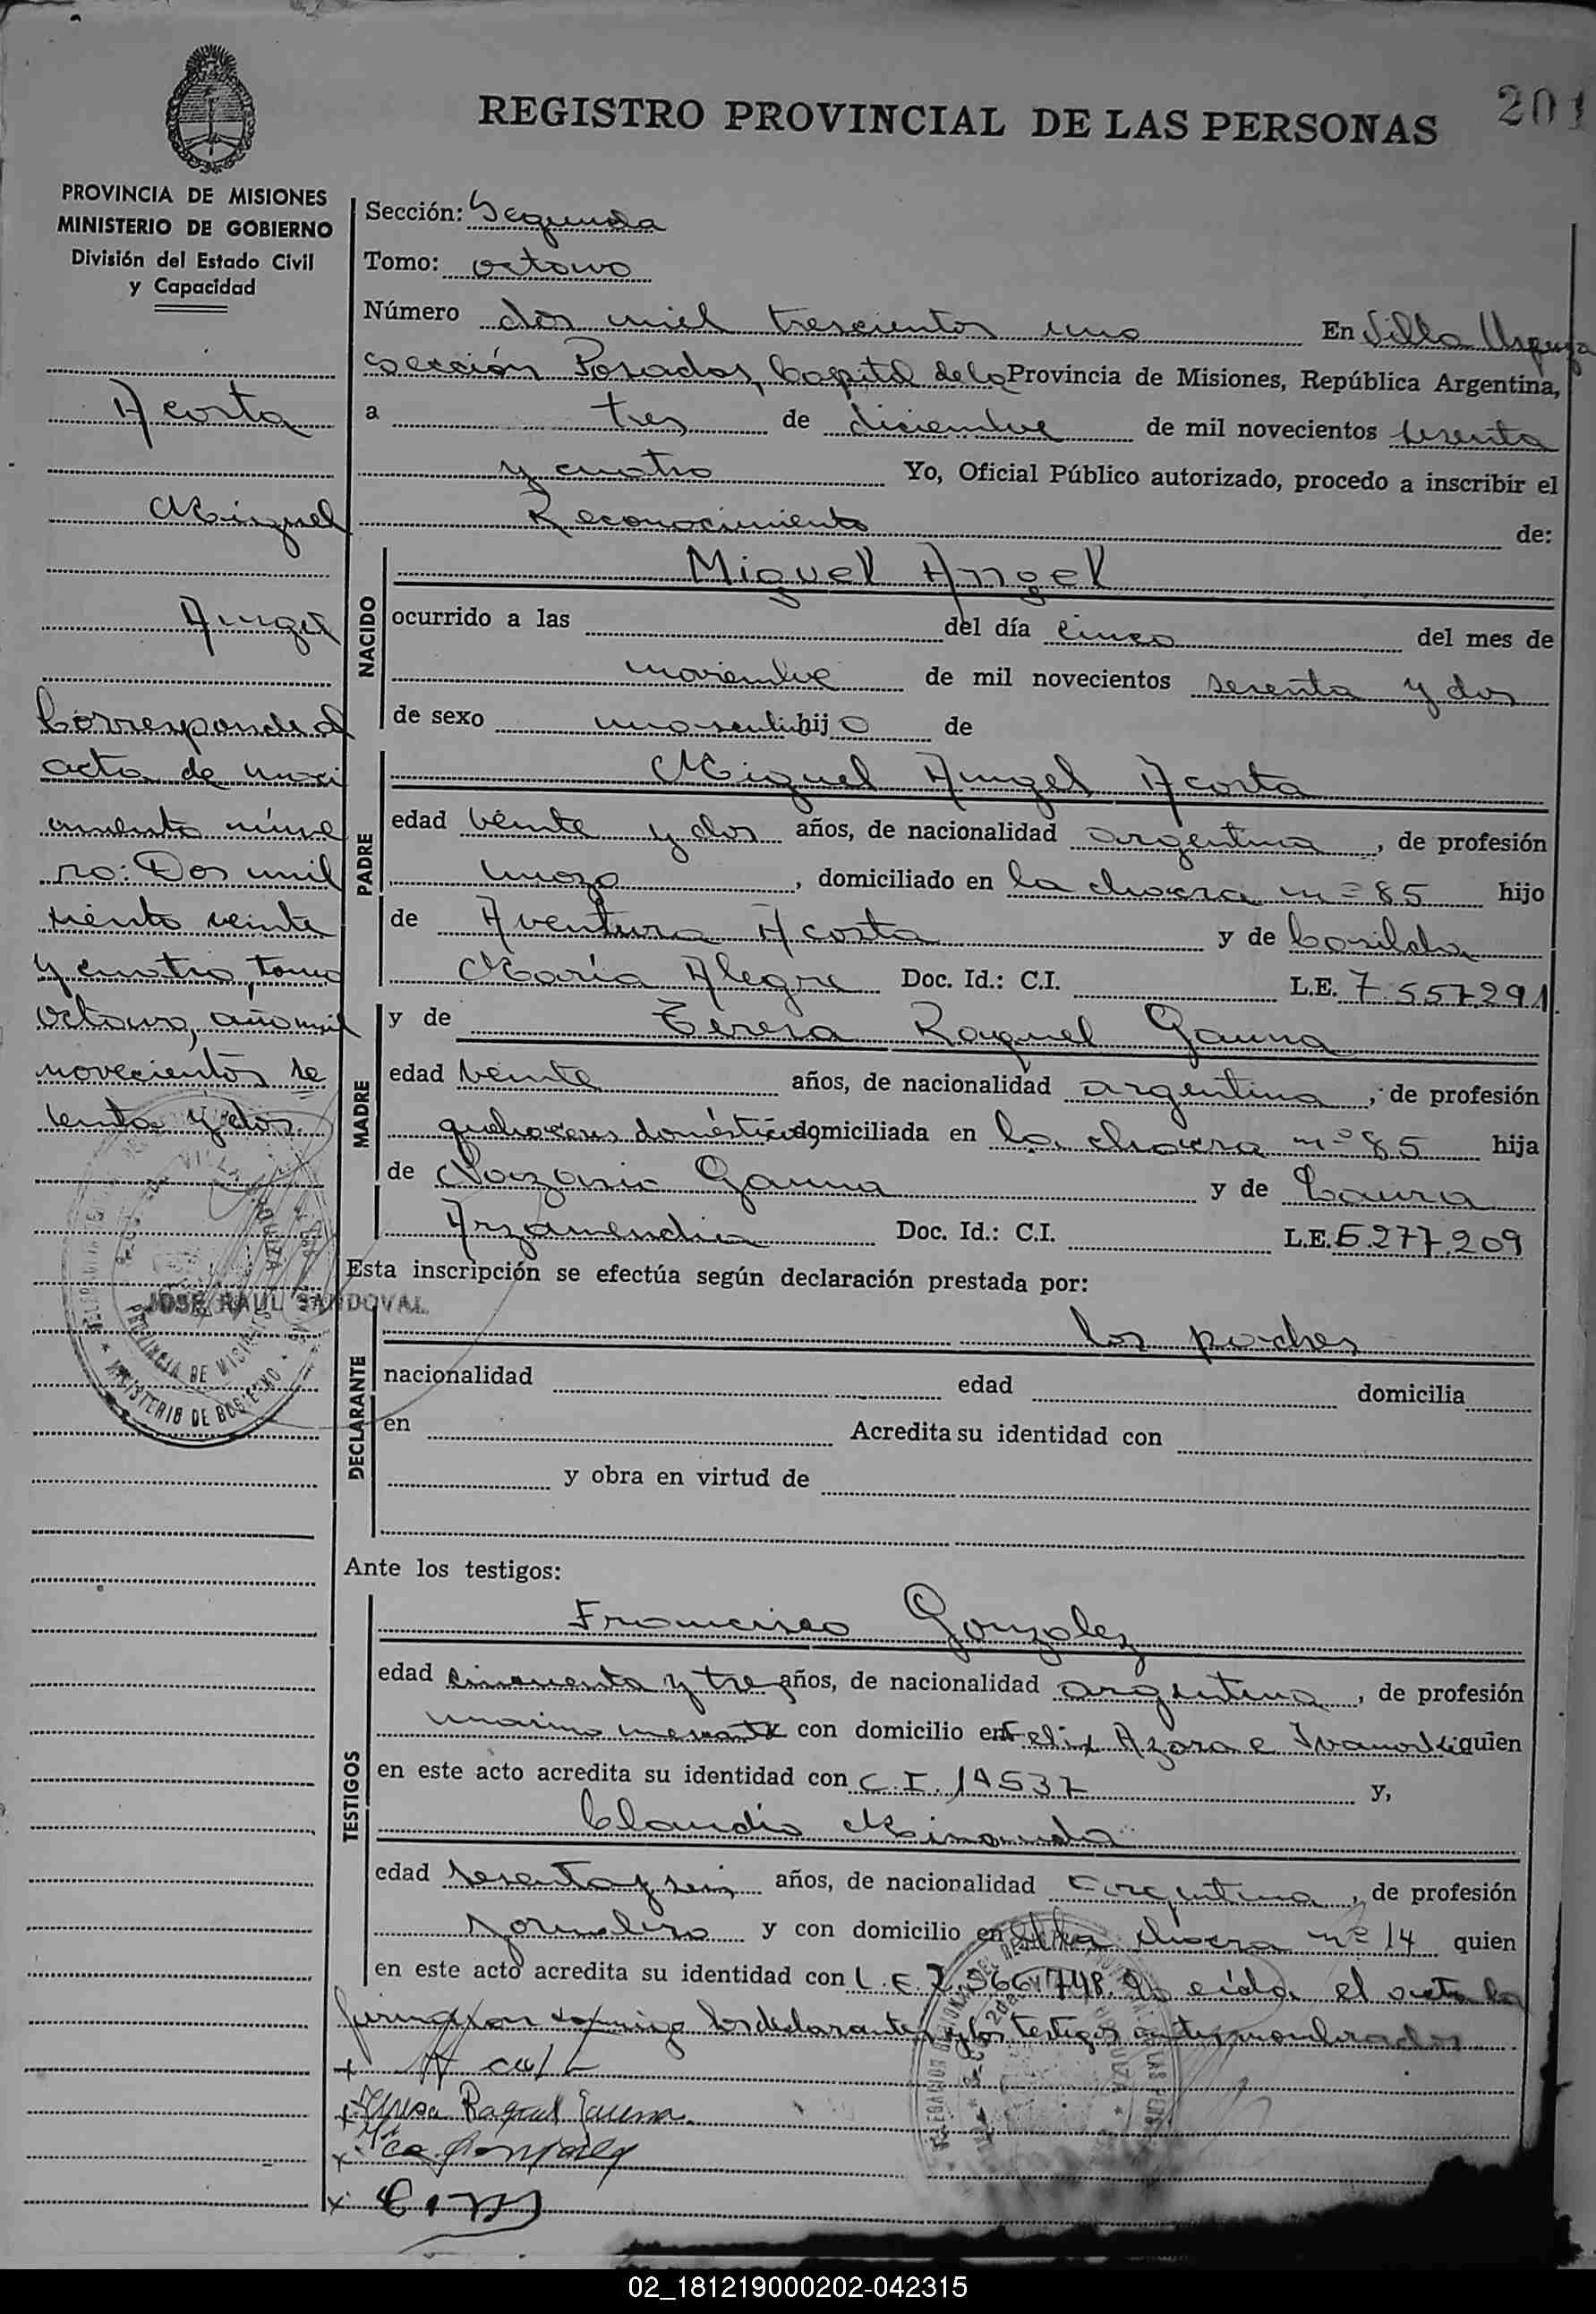 REGISTRO PROVINCIAL DE LAS PERSONAS
201
PROVINCIA DE MISIONES
MINISTERIO DE GOBIERNO
División del Estado Civil
y Capacidad
Acosta
Miguel
Angel
Corresponde al
acta de naci
miento núme
ro: Dos mil
ciento veinte
y cuatro, tomo
octavo, año mil
novecientos se
senta y dos.
JOSE RAUL SANDOVAL
PROVINCIA DE MISIONES
MINISTERIO DE GOBIERNO
Sección: Segunda
Tomo: octavo
Número dos mil trescientos uno En Villa Urquiza
sección Posadas, Capital de la Provincia de Misiones, República Argentina,
a tres de diciembre de mil novecientos sesenta
y cuatro Yo, Oficial Público autorizado, procedo a inscribir el
Reconocimiento de:
NACIDO
Miguel Angel
ocurrido a las del día cinco del mes de
noviembre de mil novecientos sesenta y dos
de sexo masculi hijo de
PADRE
Miguel Angel Acosta
edad veinte y dos años, de nacionalidad argentina, de profesión
mozo, domiciliado en la chacra nº 85 hijo
de Aventura Acosta y de Casilda
María Alegre Doc. Id.: C.I. L.E. 7.557.291
MADRE
y de Teresa Raquel Gauna
edad veinte años, de nacionalidad argentina, de profesión
quehaceres domésticos domiciliada en la chacra nº 85 hija
de Nazario Gauna y de Laura
Arzamendia Doc. Id.: C.I. L.E. 6.277.209
Esta inscripción se efectúa según declaración prestada por:
DECLARANTE
los padres
nacionalidad edad domicilia
en Acredita su identidad con
y obra en virtud de
Ante los testigos:
TESTIGOS
Francisco Gonzalez
edad cincuenta y tres años, de nacionalidad argentina, de profesión
marino mercante con domicilio en Felix Azara e quien
en este acto acredita su identidad con C.I. 14537 y,
Claudio Miranda
edad sesenta y seis años, de nacionalidad argentina, de profesión
jornalero y con domicilio en chacra nº 14 quien
en este acto acredita su identidad con L.E. 2.566.748. Leída el acta la
firman conmigo los declarantes y los testigos antes nombrados
x
x Teresa Raquel Gauna
x Fco Gonzalez
x C. M
02_181219000202-042315